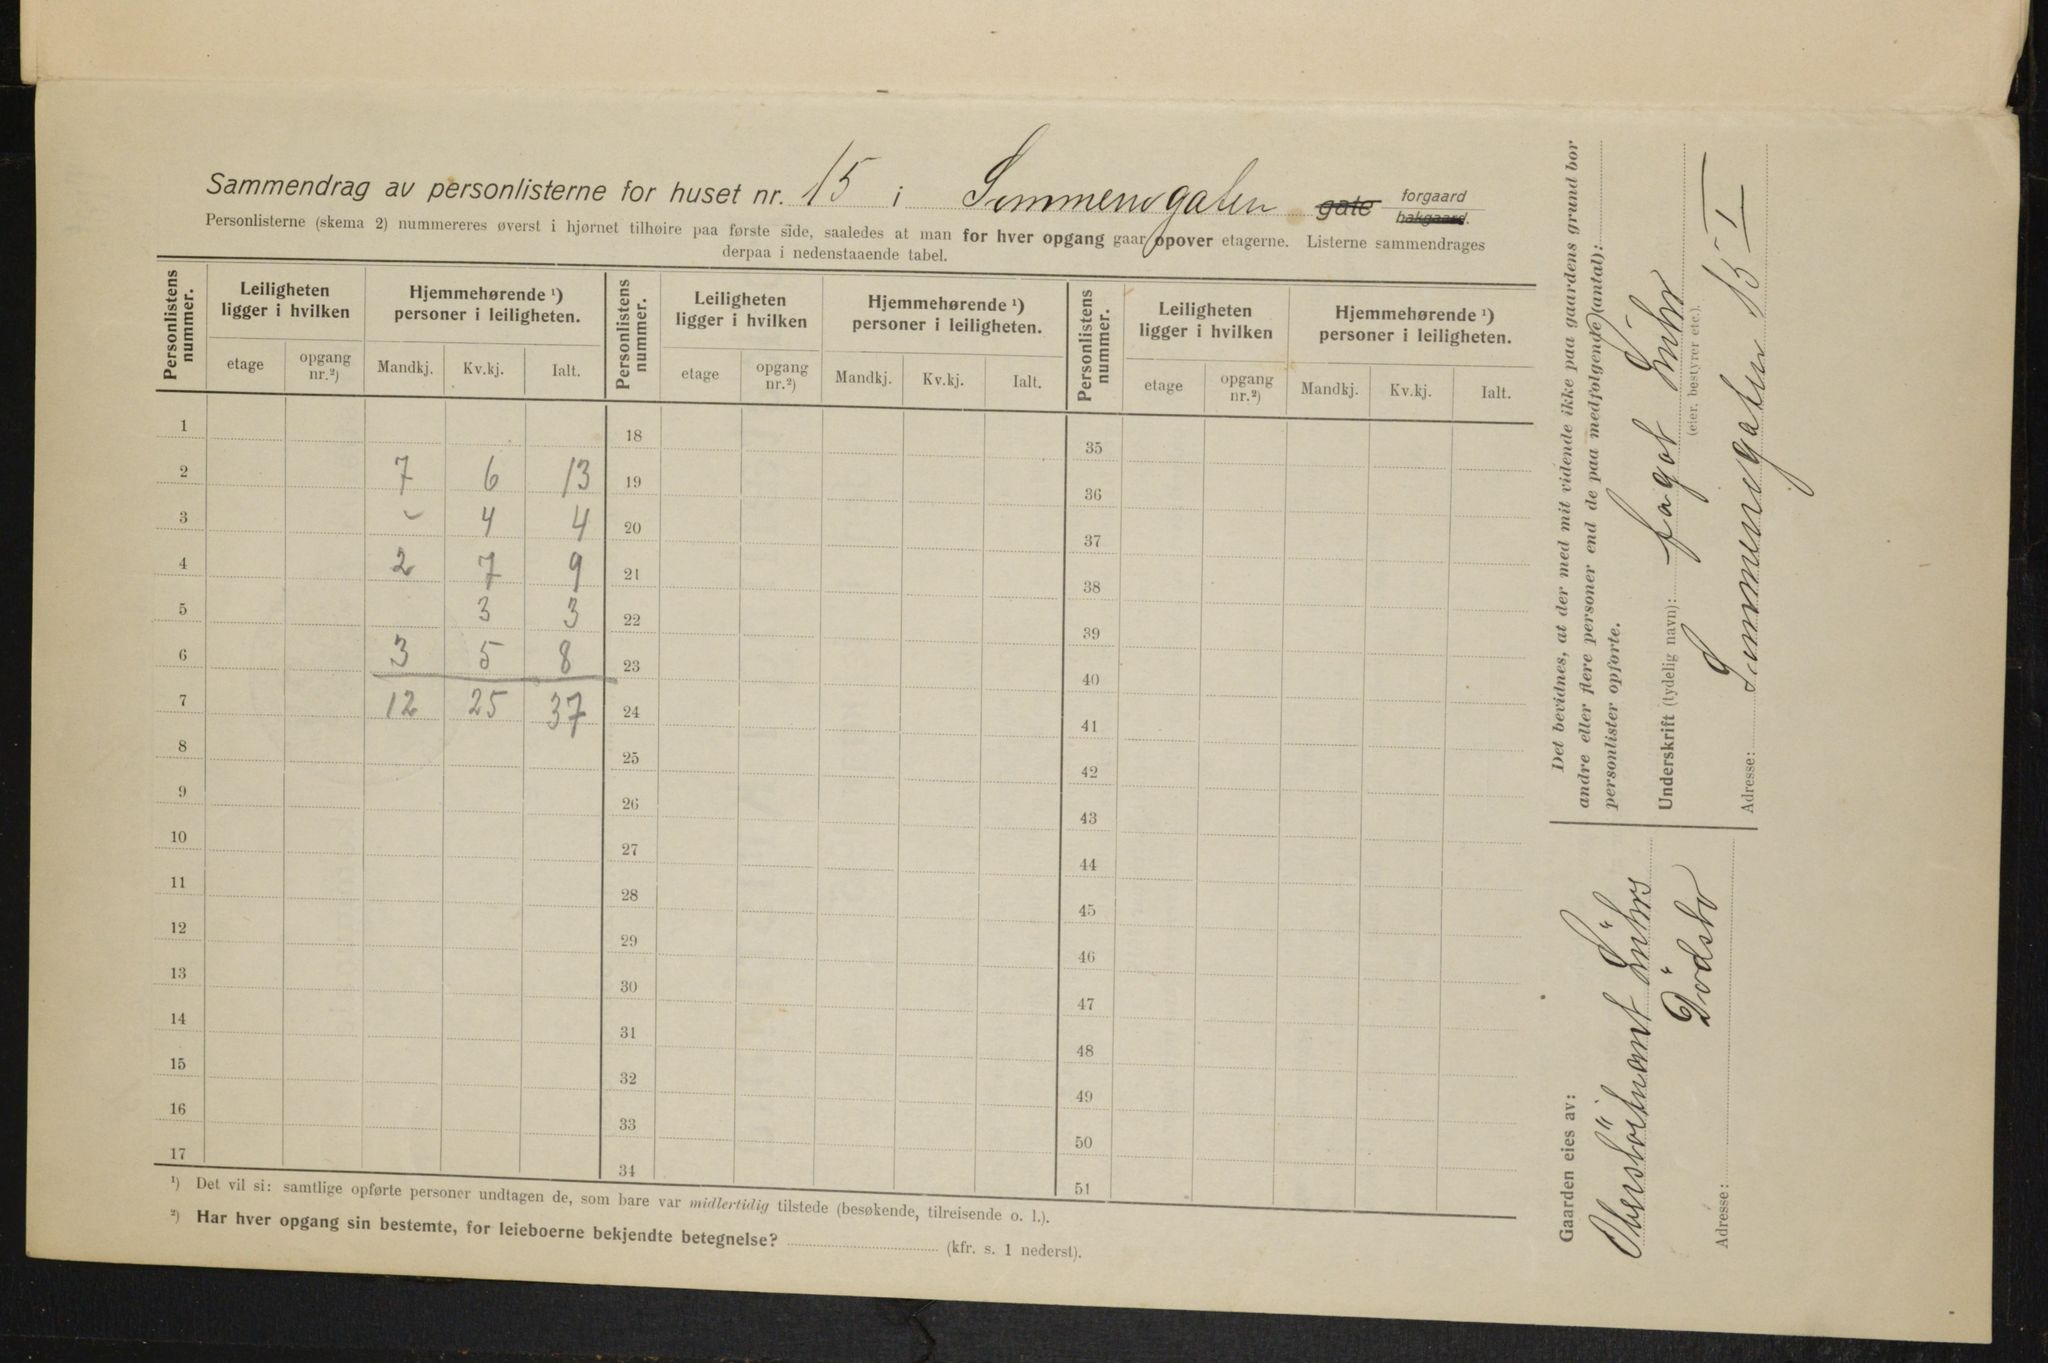 Sammendrag av personlisterne for huset nr. 15 i Sommerrogaten gate forgaard
bakgaard.
Personlisterne (skema 2) nummereres øverst i hjørnet tilhøire paa første side, saaledes at man for hver opgang gaar opover etagerne. Listerne sammendrages
derpaa i nedenstaaende tabel.
Personlistens nummer. Leiligheten ligger i hvilken Hjemmehørende ¹) personer i leiligheten. Personlistens nummer. Leiligheten ligger i hvilken Hjemmehørende ¹) personer i leiligheten. Personlistens nummer. Leiligheten ligger i hvilken Hjemmehørende ¹) personer i leiligheten.
etage opgang nr.²) Mandkj. Kv.kj. Ialt. etage opgang nr.²) Mandkj. Kv.kj. Ialt. etage opgang nr.²) Mandkj. Kv.kj. Ialt.
1 18 35
2 7 6 13 19 36
3 - 4 4 20 37
4 2 7 9 21 38
5 3 3 22 39
6 3 5 8 23 40
7 12 25 37 24 41
8 25 42
9 26 43
10 27 44
11 28 45
12 29 46
13 30 47
14 31 48
15 32 49
16 33 50
17 34 51
¹) Det vil si: samtlige opførte personer undtagen de, som bare var midlertidig tilstede (besøkende, tilreisende o. l.).
²) Har hver opgang sin bestemte, for leieboerne bekjendte betegnelse? (kfr. s. 1 nederst).
Det bevidnes, at der med mit vidende ikke paa gaardens grund bor
andre eller flere personer end de paa medfølgende (antal):
personlister opførte.
Underskrift (tydelig navn):
(eier, bestyrer etc.).
Adresse: Sommerrogaten 15 I
Gaarden eies av:
Oberstlöitnant Lührs
Dödsbo
Adresse: